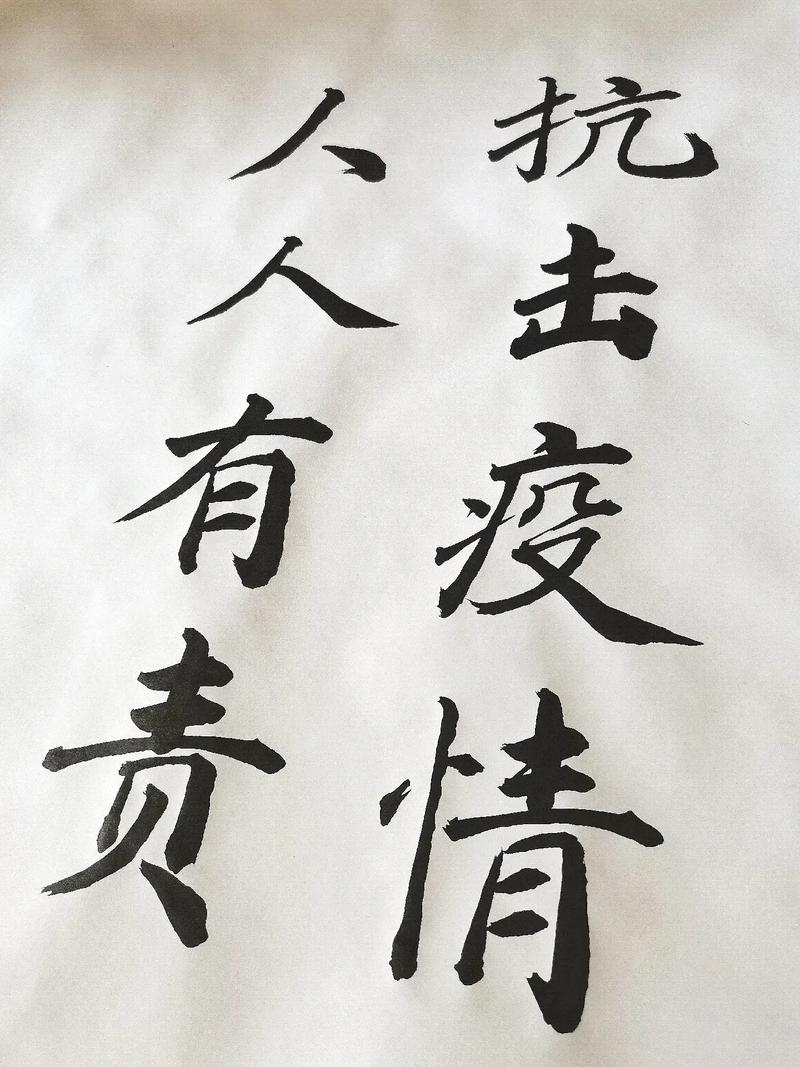 抗击疫情
人人有责